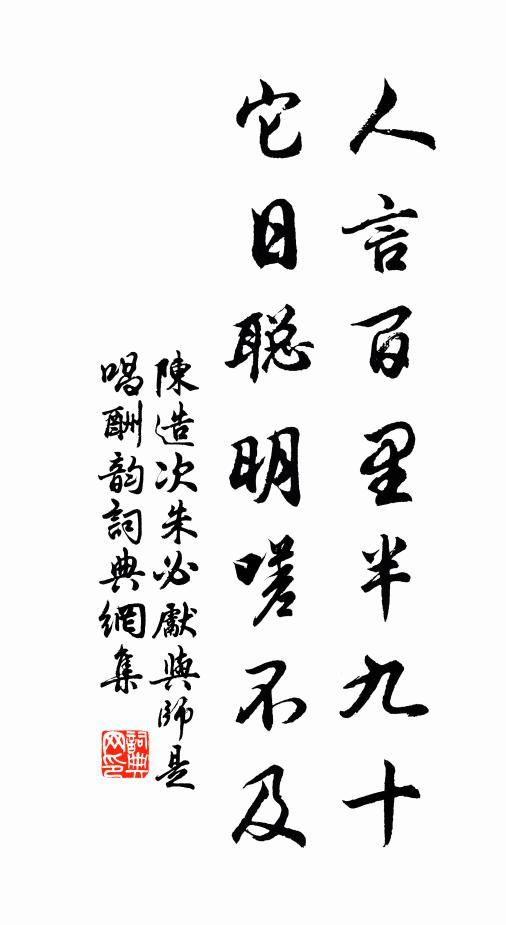 人言百里半九十
它日聪明嗟不及
陳造次朱必獻與師是
唱酬韵詞典網集
詞典网印